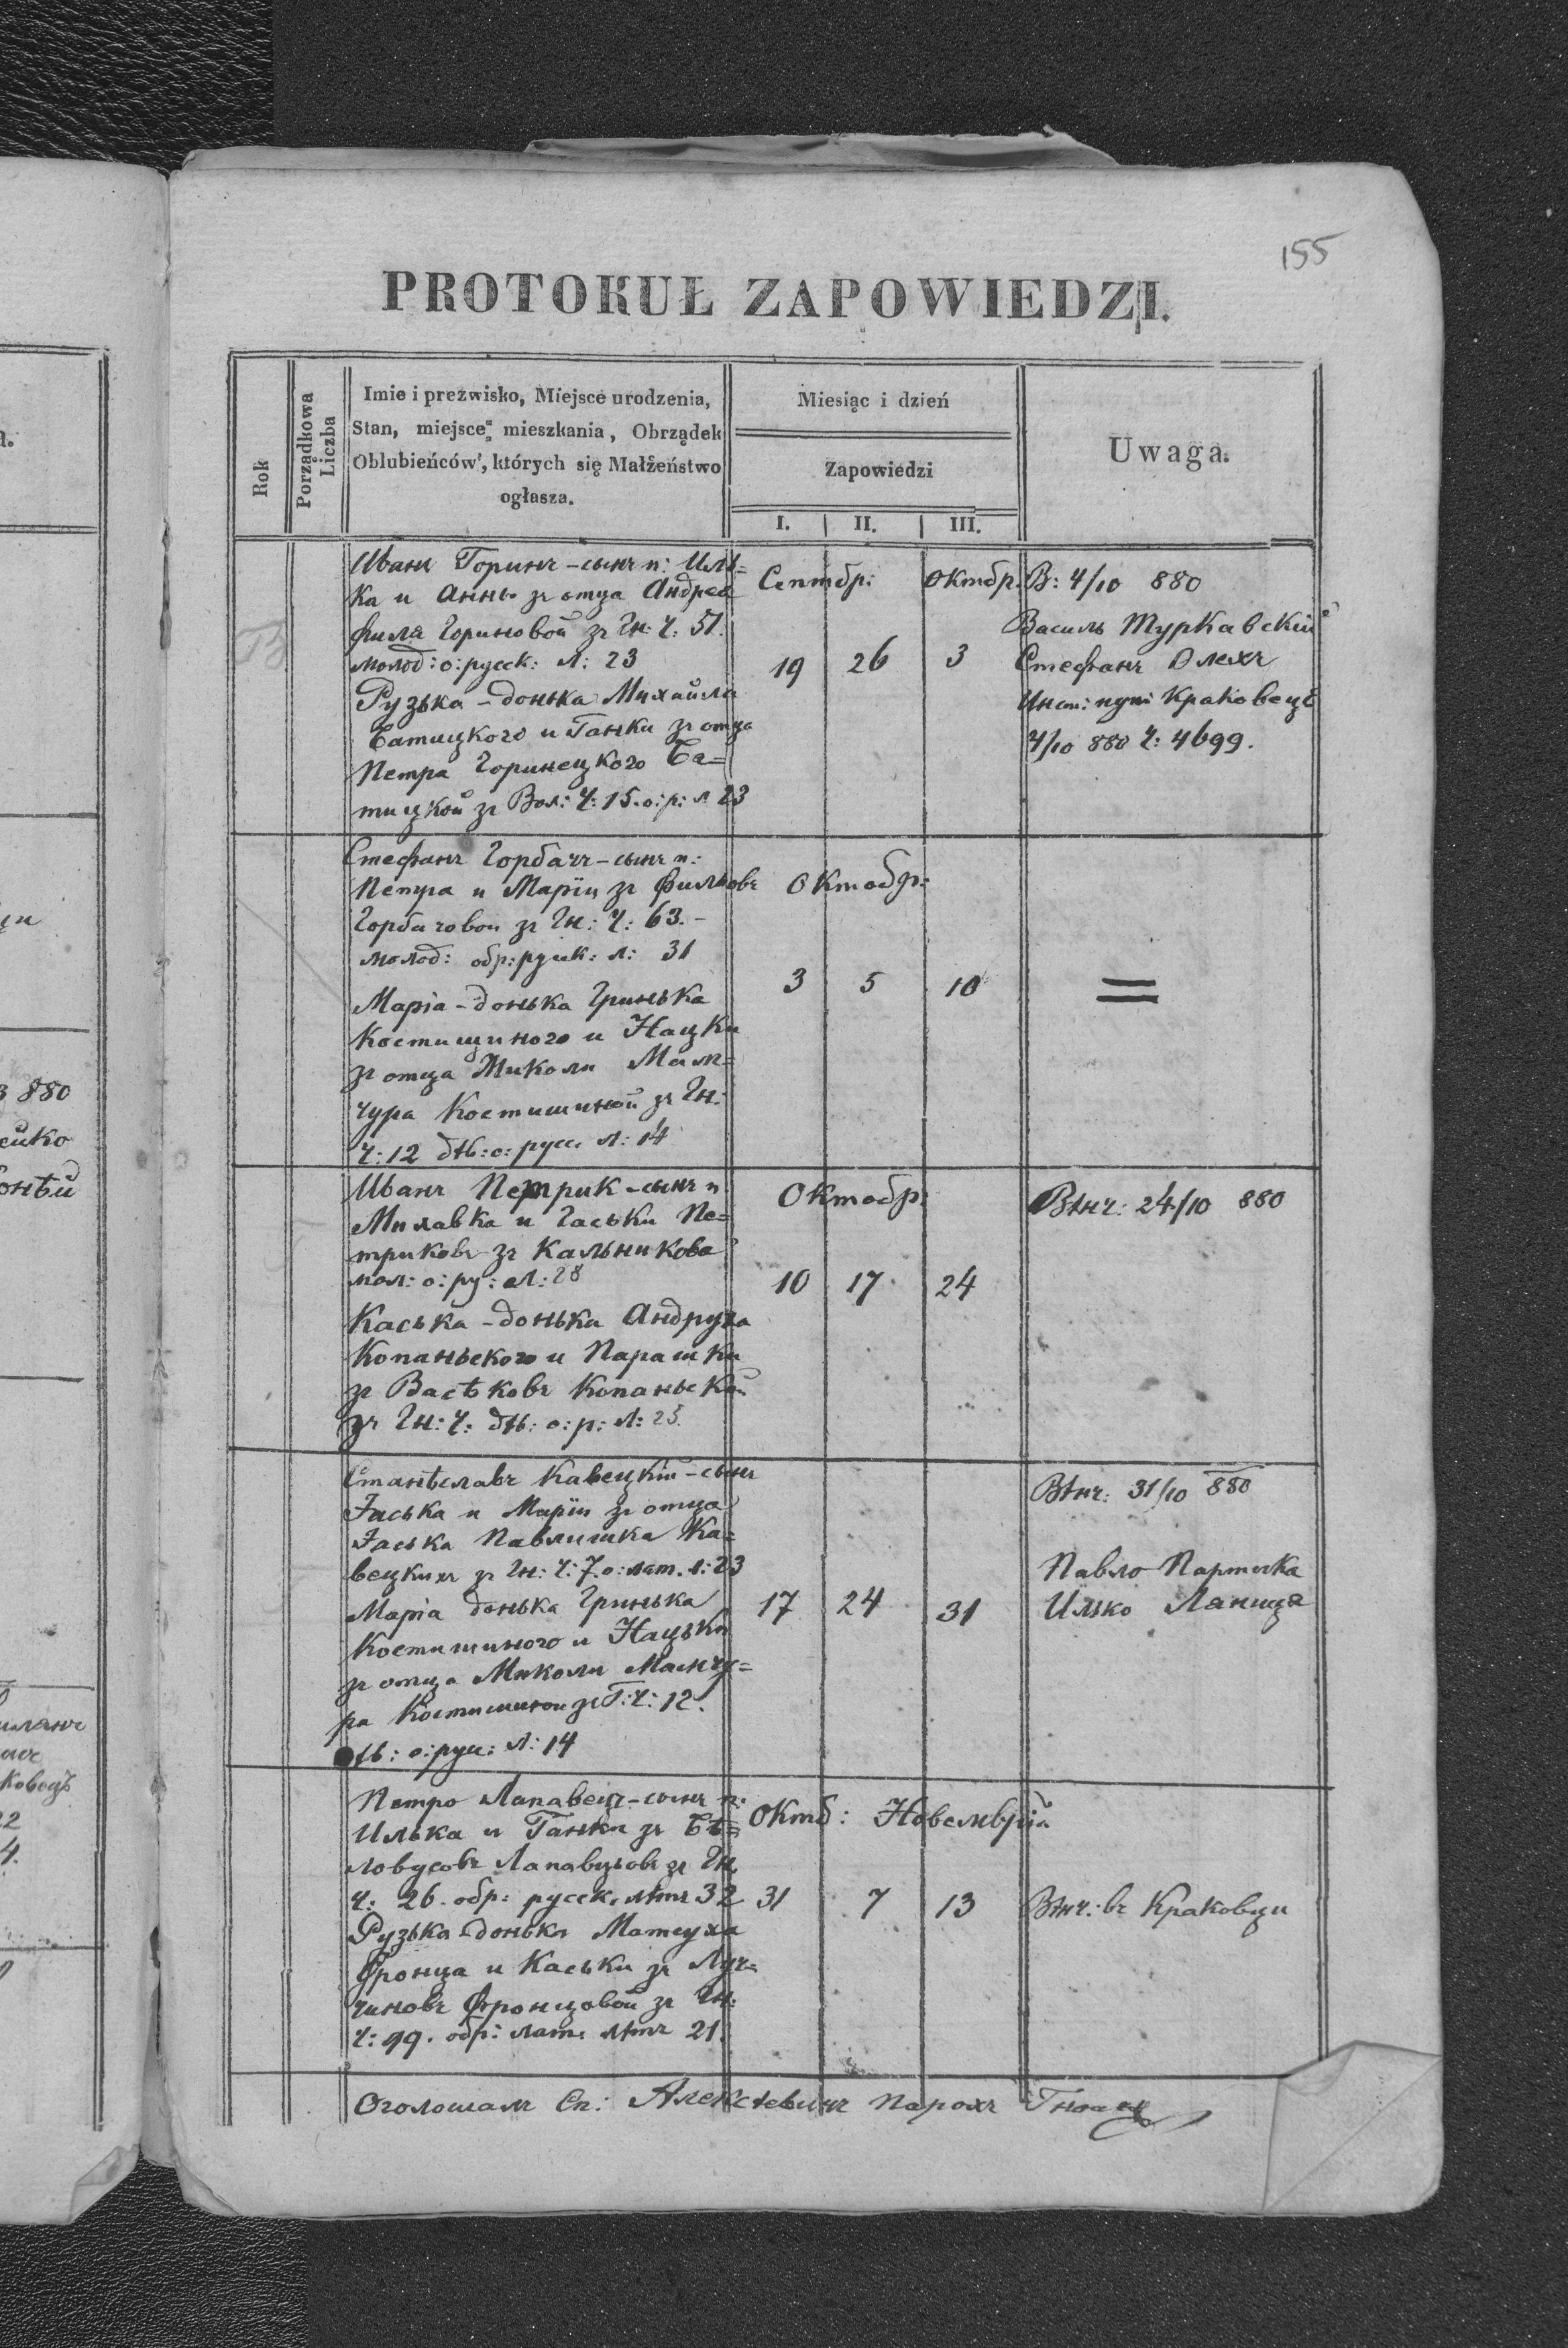 155
PROTOKUŁ ZAPOWIEDZI.
Rok
Porządkowa Liczba
Imie i prezwisko, Miejsce urodzenia,
Stan, miejsce mieszkania, Obrządek
Oblubieńców, których się Małżeństwo
ogłasza.
Miesiąc i dzień
Zapowiedzi
I. II. III.
Uwaga.
Иванъ Горинъ - сынъ п: Иль=
ка и Анны зъ отца Андрея
Филя Гориновой зъ Гн: Ч: 51.
молод: о: русск: Л: 23
Рузька - донька Михайла
Батицкого и Ганки зъ отца
Петра Горинецкого Ба=
тицкой зъ Вол: Ч: 15. о: р: л 23
Септбр: Октбр.
19 26 3
В: 4/10 880
Василь Туркавскій
Стефанъ Олехъ
Краковець
4/10 880 Ч: 4699.
Стефанъ Горбачъ - сынъ п:
Петра и Маріи зъ Фильовъ
Горбачовой зъ Гн: Ч: 63. -
молод: обр: русск: л: 31
Марія - донька Гринька
Костишиного и Нацки
зъ отца Миколи Мам=
чура Костишиной зъ Гн:
Ч: 12 дѣв: о: русс Л: 14
Октобр:
3 5 10
=
Иванъ Петрик - сынъ п
Милавка и Гаськи Пе=
триковъ зъ Кальникова
мол: о: ру: Л: 28
Каська - донька Андруха
Копаньского и Парашки
зъ Васѣковъ Копаньской
зъ Гн: Ч: дѣв: о: р: Л: 25.
Октобр:
10 17 24
Вѣнч: 24/10 880
Станѣславъ Кавецкій - сынъ
Яська и Маріи зъ отца
Яська Павлишка Ка=
вецкихъ зъ Гн: Ч: 7. о: лат. л: 23
Марія донька Гринька
Костишиного и Нацьки
зъ отца Миколи Мамчу=
ра Костишиной зъ Г: Ч: 12.
о: русс: Л: 14
17 24 31
Вѣнч: 31/10 880
Павло Партыка
Илько Ланица
Петро Лапавецъ - сынъ п:
Илька и Ганки зъ Бѣ=
ловусовъ Лапавцьовъ зъ Гн.
Ч: 26. обр: русск, лѣтъ 32
Рузька - донька Матеуха
Фронца и Каськи зъ Луч=
чиновъ Фронцовой зъ Гн:
Ч: 99. обр: лат. лѣтъ 21.
Октб: Новемврій
31 7 13
Вѣнч: въ Краковци
Оголошалъ Сп: Алексѣевичъ парохъ